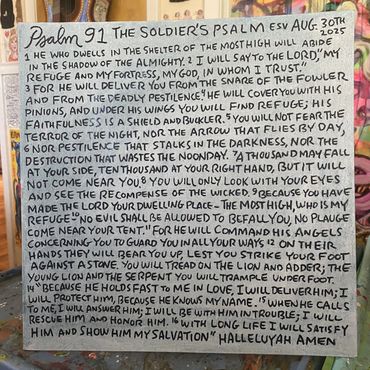 Psalm 91 THE SOLDIER'S PSALM ESV AUG. 30TH 2025
1 HE WHO DWELLS IN THE SHELTER OF THE MOST HIGH WILL ABIDE
IN THE SHADOW OF THE ALMIGHTY. 2 I WILL SAY TO THE LORD, "MY
REFUGE AND MY FORTRESS, MY GOD, IN WHOM I TRUST."
3 FOR HE WILL DELIVER YOU FROM THE SNARE OF THE FOWLER
AND FROM THE DEADLY PESTILENCE. 4 HE WILL COVER YOU WITH HIS
PINIONS, AND UNDER HIS WINGS YOU WILL FIND REFUGE; HIS
FAITHFULNESS IS A SHIELD AND BUCKLER. 5 YOU WILL NOT FEAR THE
TERROR OF THE NIGHT, NOR THE ARROW THAT FLIES BY DAY,
6 NOR PESTILENCE THAT STALKS IN THE DARKNESS, NOR THE
DESTRUCTION THAT WASTES THE NOONDAY. 7 A THOUSAND MAY FALL
AT YOUR SIDE, TEN THOUSAND AT YOUR RIGHT HAND, BUT IT WILL
NOT COME NEAR YOU. 8 YOU WILL ONLY LOOK WITH YOUR EYES
AND SEE THE RECOMPENSE OF THE WICKED. 9 BECAUSE YOU HAVE
MADE THE LORD YOUR DWELLING PLACE – THE MOST HIGH, WHO IS MY
REFUGE 10 NO EVIL SHALL BE ALLOWED TO BEFALL YOU, NO PLAUGE
COME NEAR YOUR TENT. 11 FOR HE WILL COMMAND HIS ANGELS
CONCERNING YOU TO GUARD YOU IN ALL YOUR WAYS 12 ON THEIR
HANDS THEY WILL BEAR YOU UP, LEST YOU STRIKE YOUR FOOT
AGAINST A STONE. YOU WILL TREAD ON THE LION AND ADDER; THE
YOUNG LION AND THE SERPENT YOU WILL TRAMPLE UNDERFOOT.
14 "BECAUSE HE HOLDS FAST TO ME IN LOVE, I WILL DELIVER HIM; I
WILL PROTECT HIM, BECAUSE HE KNOWS MY NAME. 15 WHEN HE CALLS
TO ME, I WILL ANSWER HIM; I WILL BE WITH HIM IN TROUBLE; I WILL
RESCUE HIM AND HONOR HIM. 16 WITH LONG LIFE I WILL SATISFY
HIM AND SHOW HIM MY SALVATION" HALLELUYAH AMEN